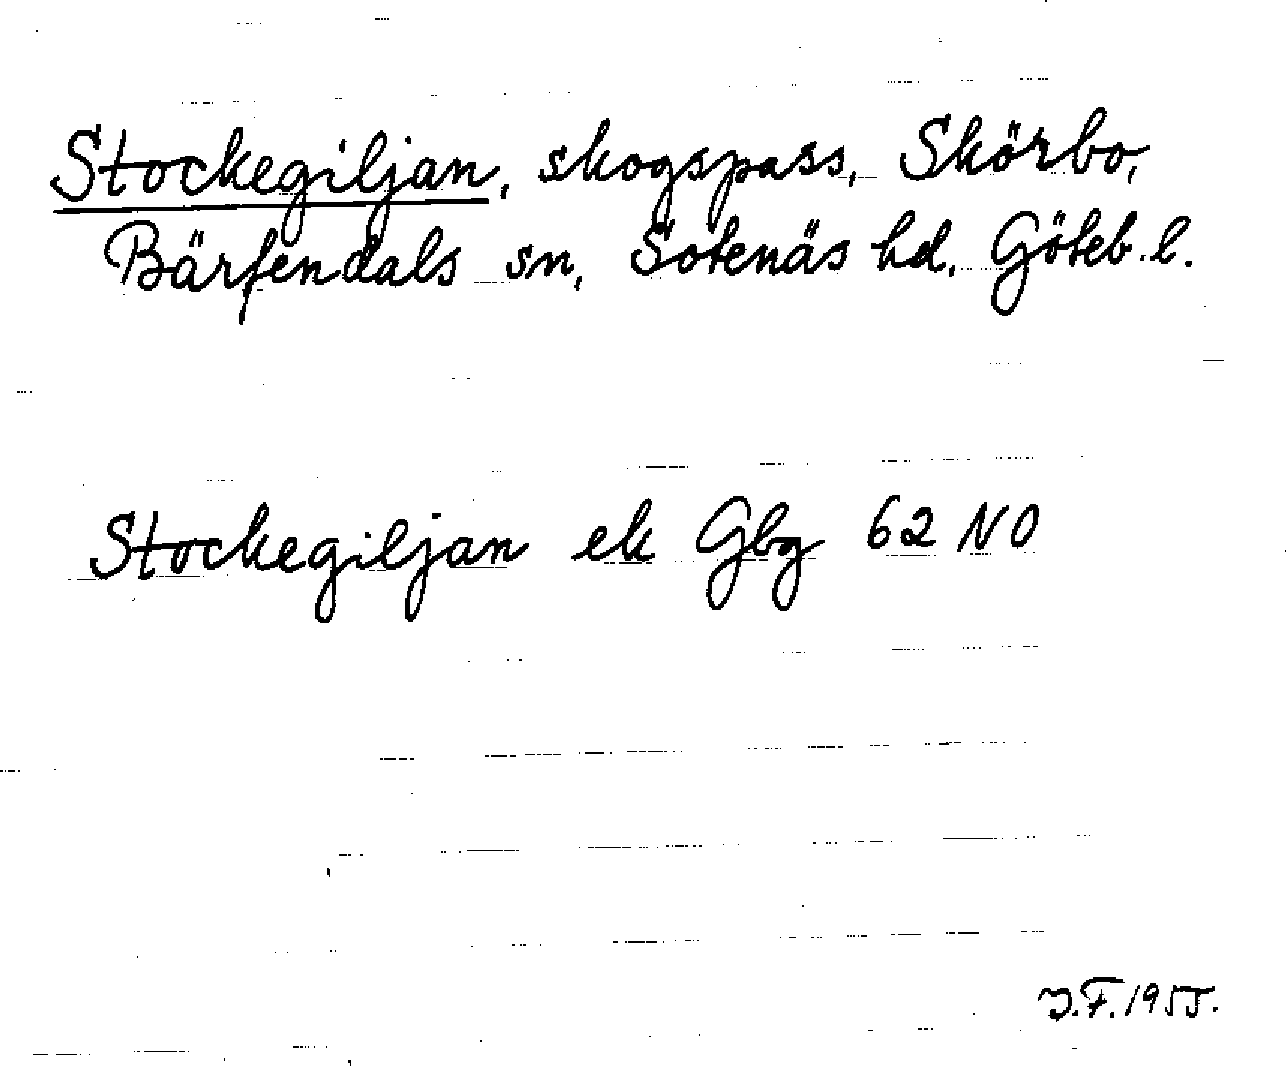 Stockegiljan, skogspass, Skörbo,
Bärfendals sn, Sotenäs hd, Göteb. l.
Stockegiljan ek Gbg 62 NO
J.F. 1955.